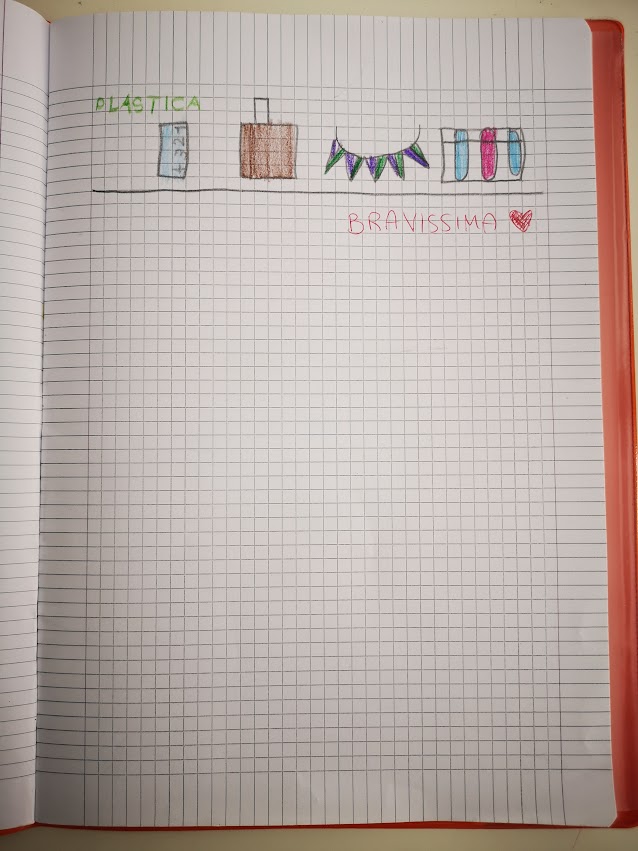 PLASTICA
1 2 3 4
BRAVISSIMA